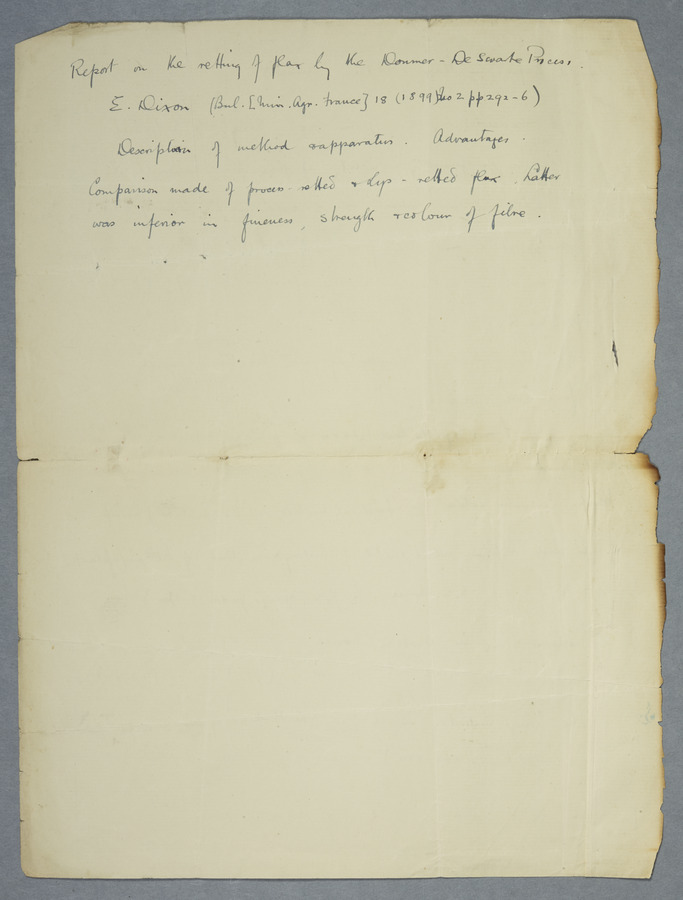 Report on the retting of flax by the Donmer - De Swarte Process.
E. Dixon (Bul. [Min. Agr. France] 18 (1899) No 2 pp 292-6)
Description of method & apparatus. Advantages.
Comparison made of process-retted & Lys-retted flax. Latter
was inferior in fineness, strength & colour of fibre.